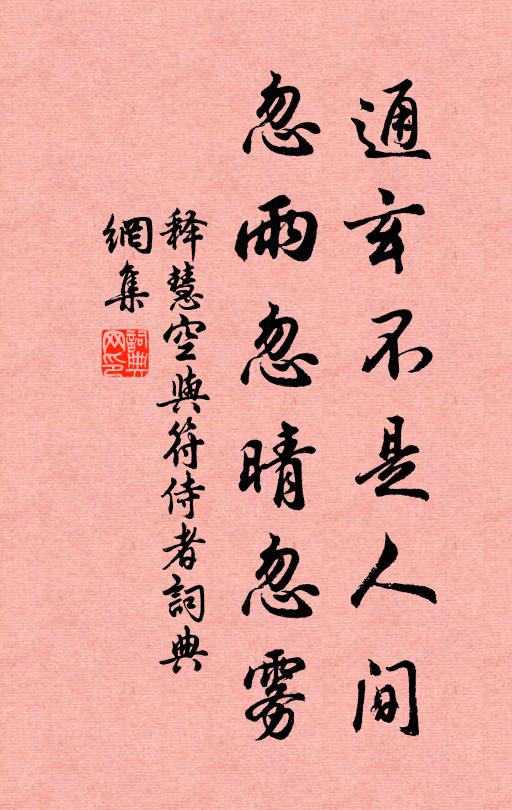 通玄不是人间
忽雨忽晴忽雾
释慧空與符侍者詞典
網集
詞典
网印